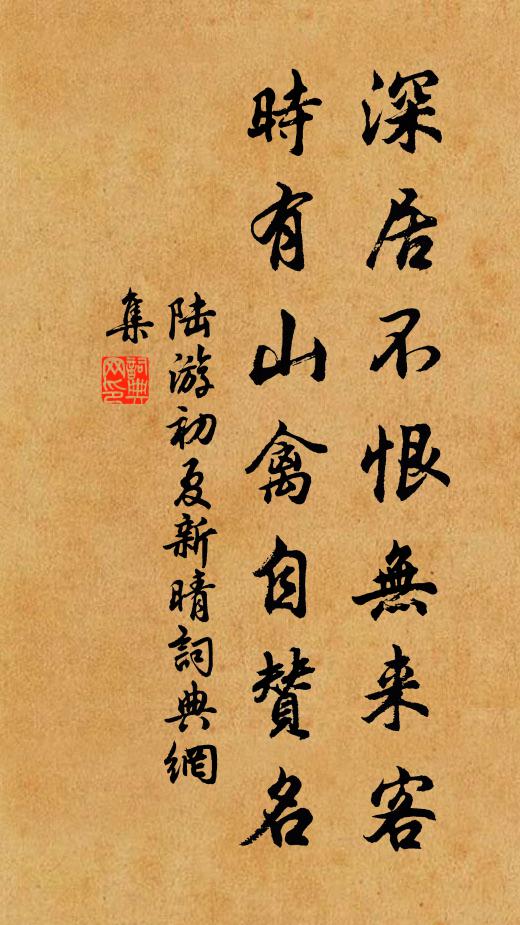 深居不恨無来客
時有山禽自賛名
陆游初夏新晴詞典網
集
詞典
网印